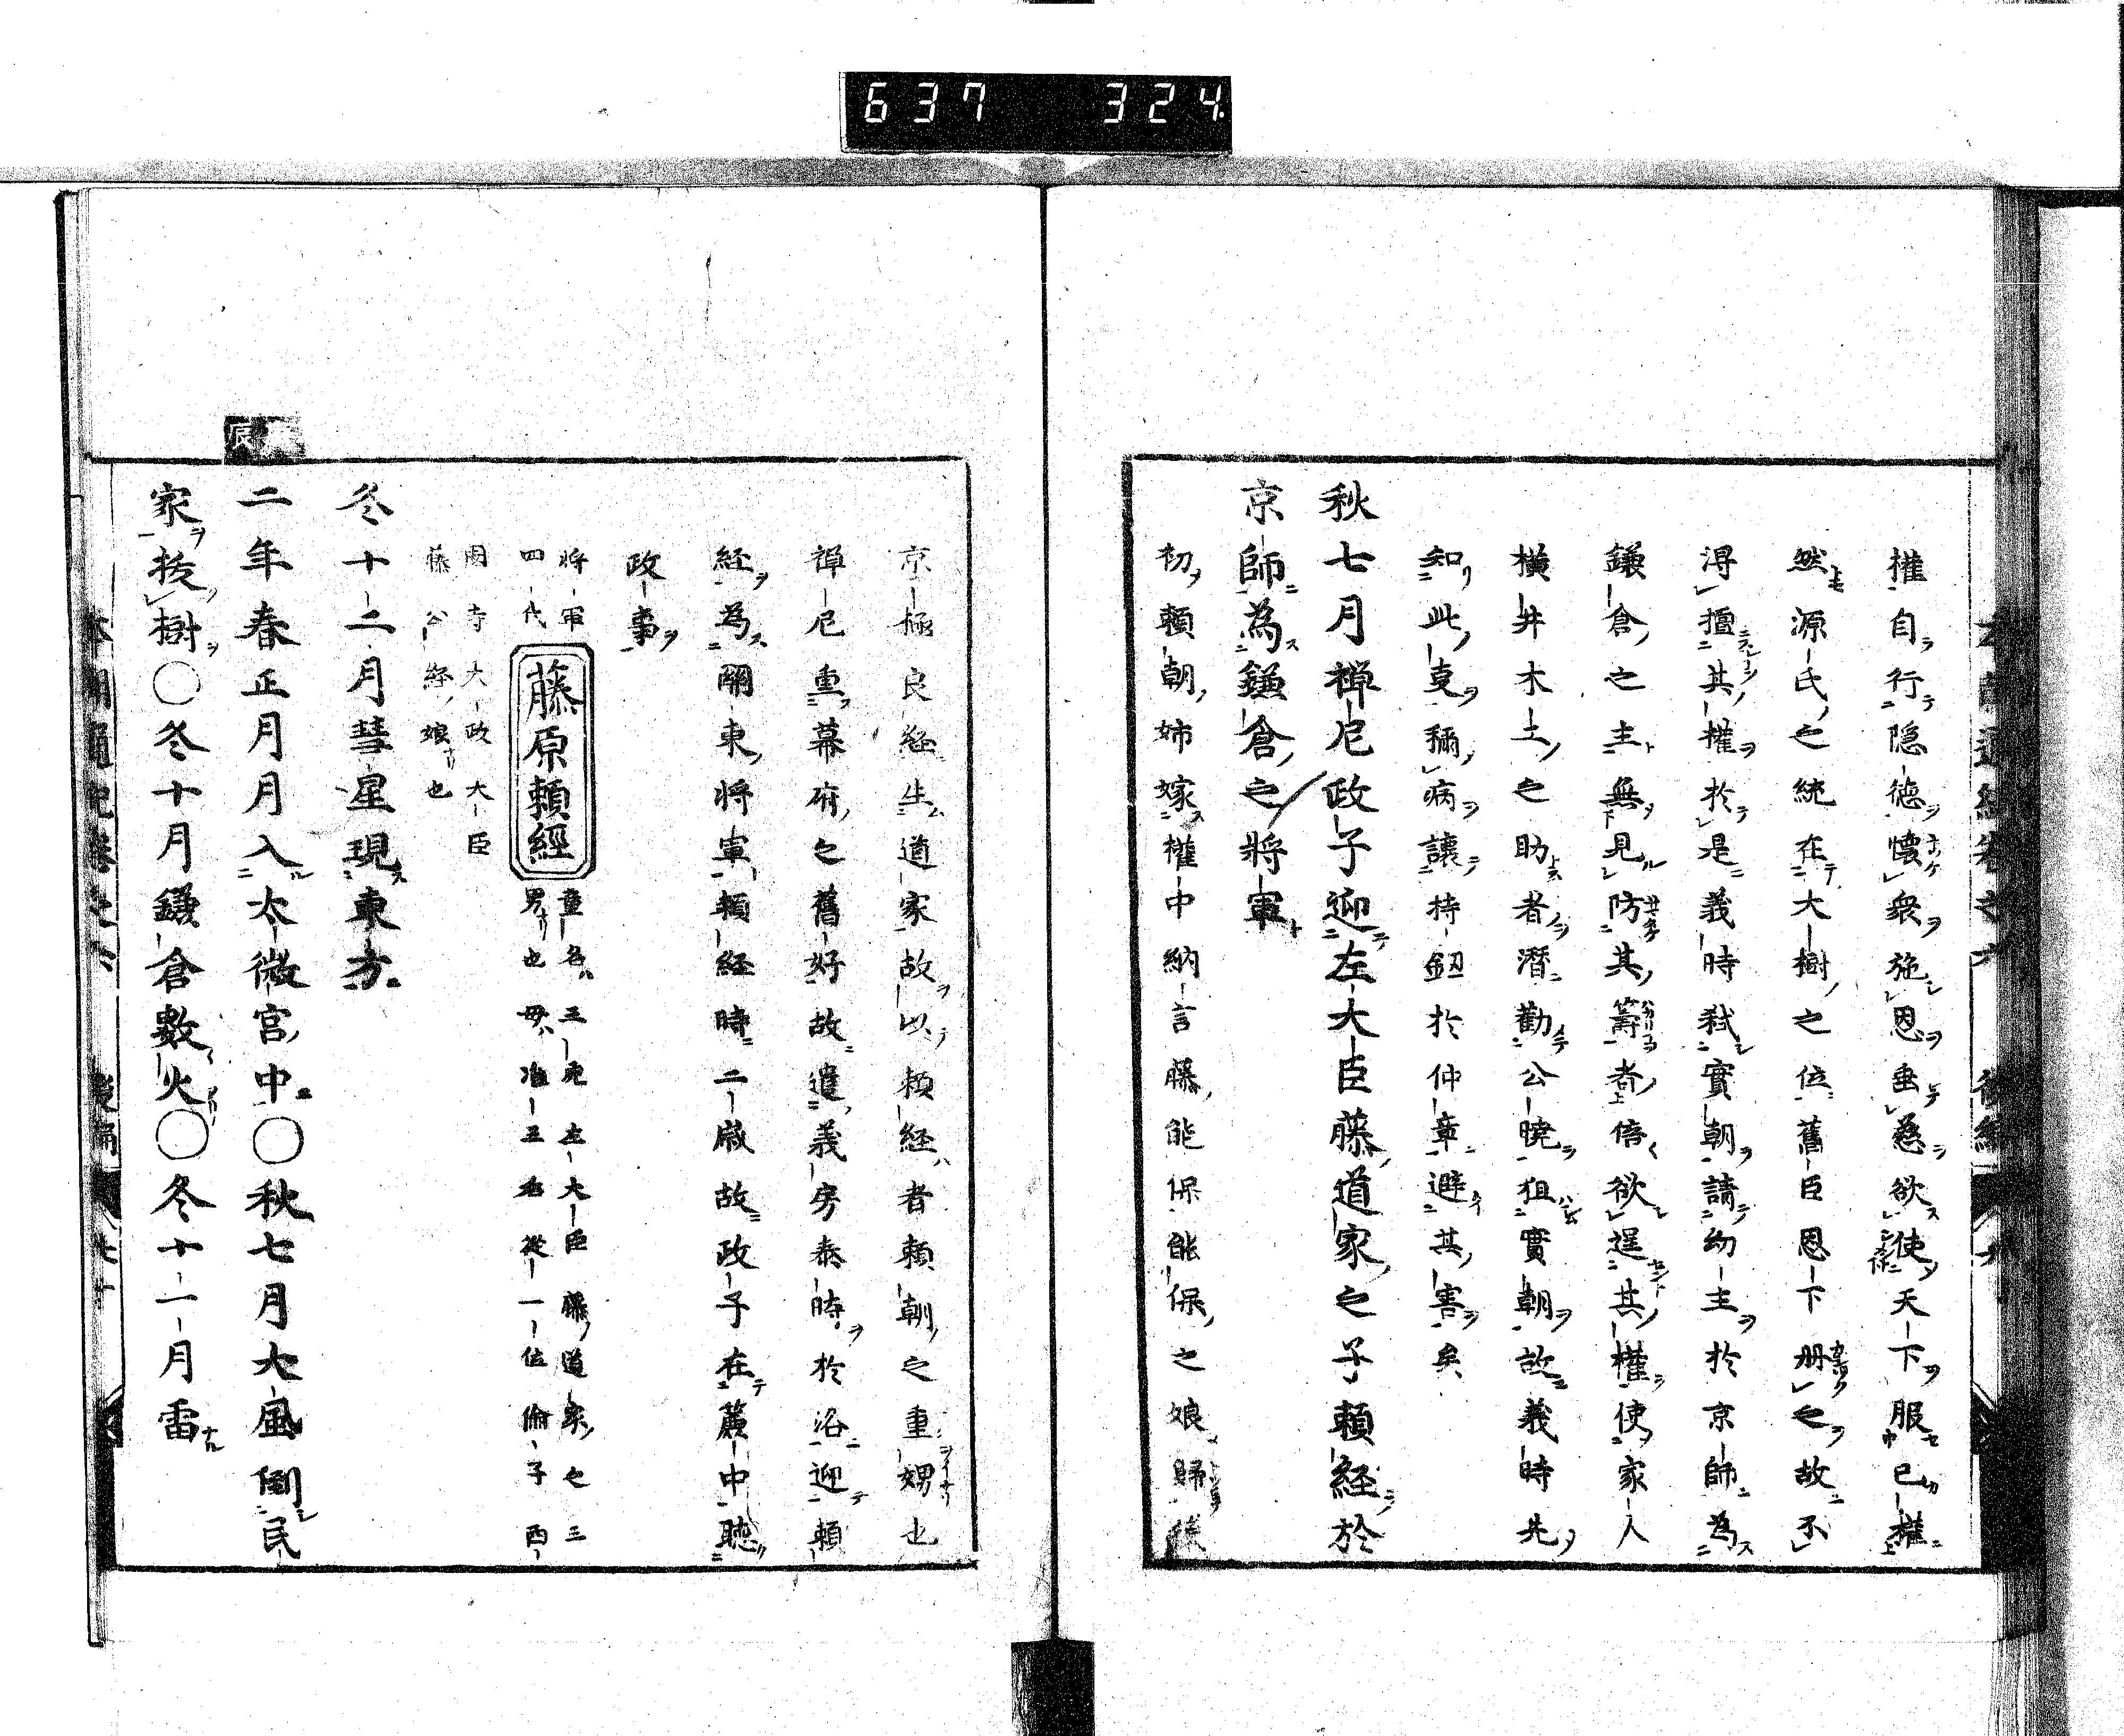 637 324
權自行隠德懐衆施恩垂慈欲使天下服己權
然源氏之統在大樹之位舊臣恩下册之故不
得擅其權於是義時弑實朝請幼主於京師為
鎌倉之主無見防其籌者倍欲逞其權使家人
横井木土之助者潛勸公曉狙實朝故義時先
知此叓稱病讓持釼於仲章避其害矣
秋七月禅尼政子迎左大臣藤道家之子頼経於
京師為鎌倉之將軍
初頼朝姉嫁權中納言藤能保能保之娘歸後
京極良経生道家故以頼経者頼朝之重甥也
禅尼重幕府之舊好故遣義房泰時於洛迎頼
経為關東将軍頼経時二歳故政子在簾中聴
政事
将軍四代
藤原頼經
童名三虎左大臣藤道家之三
男也母准三后從一位倫子西
園寺大政大臣
藤公経娘也
冬十二月彗星現東方
辰
二年春正月月入太微宮中〇秋七月大風倒民
家抜樹〇冬十月鎌倉數火〇冬十一月雷